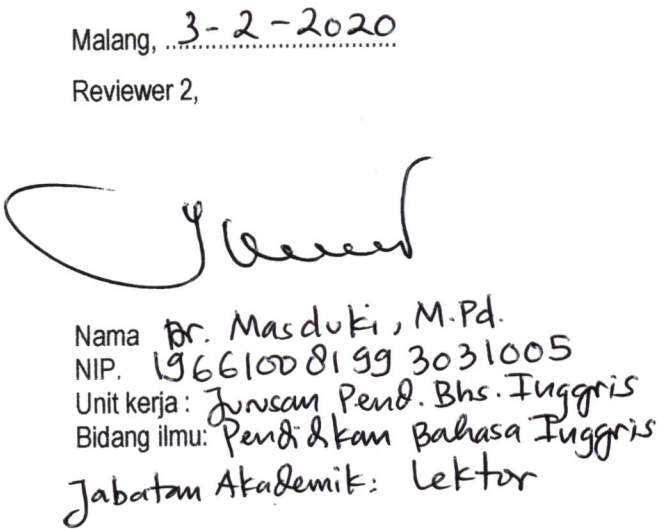 Malang, 3-2-2020
Reviewer 2,
Nama Dr. Masduki, M.Pd.
NIP. 196610081993031005
Unit kerja : Jurusan Pend. Bhs. Inggris
Bidang ilmu: Pendidikan Bahasa Inggris
Jabatan Akademik: Lektor